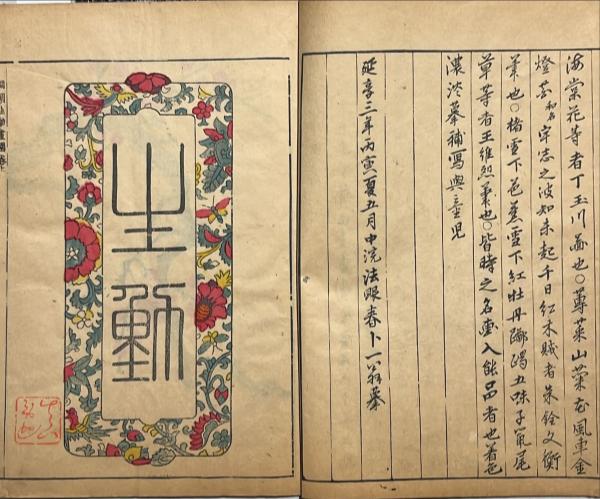 海棠花等者丁玉川畫也○蓴菜山藥花風車金
燈花和名宇志之波如未起千日紅木賊者朱銓文衡
筆也○楮雪下芭蕉雪下紅牡丹躑躅五味子鼠尾
草等者王維烈筆也○皆時之名畫入能品者也着色
濃淡摹補寫與童児
延享三年丙寅夏五月中浣法眼春卜一翁摹
生動